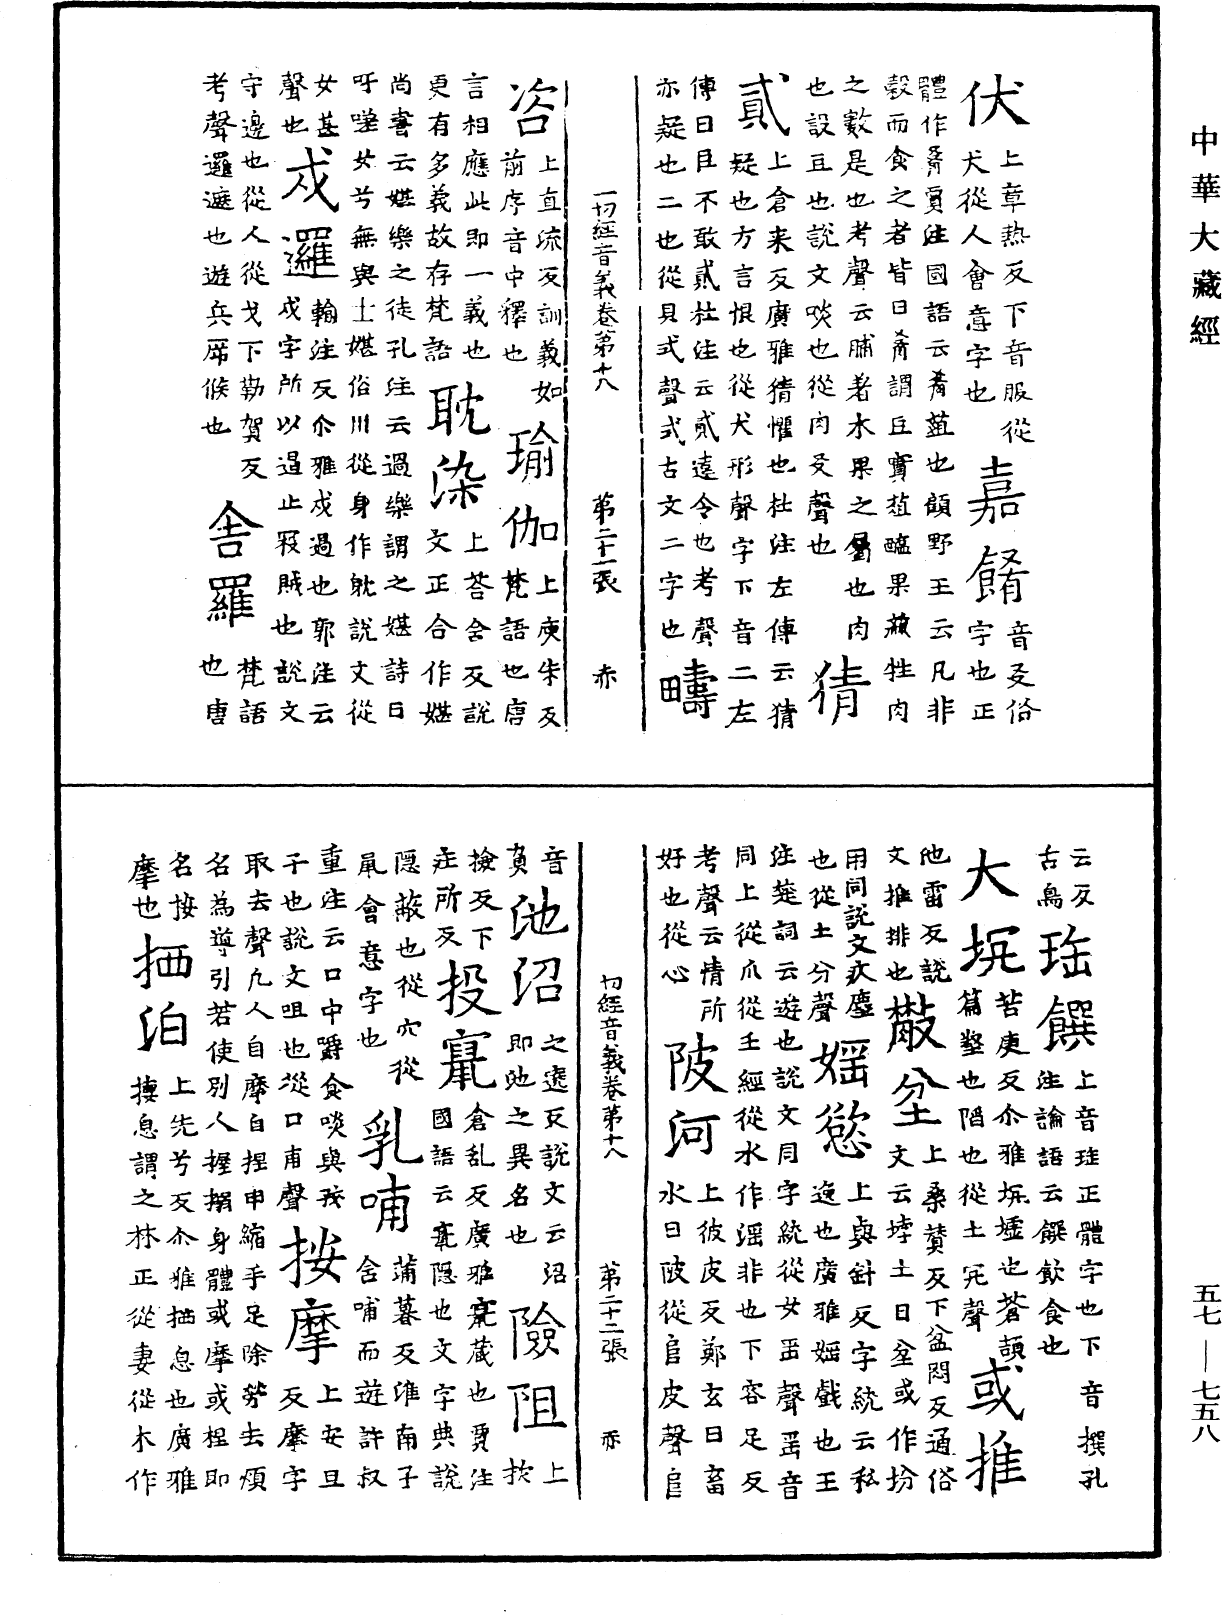 中華大藏經
伏 上章熱反下音服從
犬從人會意字也 嘉餚 音爻俗字也正
體作肴賈注國語云肴葅也顧野王云凡非
穀而食之者皆曰肴謂豆實葅醢果蓏牲肉
之數是也考聲云脯著木果之屬也肉
也設豆也說文啖也從肉爻聲也 猜
貳 上倉來反廣雅猜懼也杜注左傳云猜
疑也方言恨也從犬形聲字下音二左
傳曰臣不敢貳杜注云貳遠令也考聲
亦疑也二也從貝弍聲弍古文二字也 疇
一切經音義卷第十八 第二十一張 赤
咨 上直流反訓義如前序音中釋也 瑜伽 上庾朱反梵語也唐
言相應此即一義也
更有多義故存梵語 耽染 上荅含反說文正合作媅
尚書云媅樂之徒孔注云過樂謂之媅詩曰
吁嗟女兮無與士媅俗用從身作躭說文從
女甚聲也 戍邏 輸注反尒雅戍遏也郭注云戍字所以遏止寇賊也說文
守邊也從人從戈下勒賀反
考聲邏遮也遊兵斥候也 舍羅 梵語也唐
云反
古鳥 珤饌 上音珤正體字也下音撰孔注論語云饌飲食也
大坑 苦庚反尒雅坑墟也蒼頡篇壑也陷也從土冗聲 或推
他雷反說
文推排也 㪚坌 上桑贊反下盆悶反通俗文云㘸土曰坌或作坋
用同說文亦塵
也從土分聲 婬慾 上與針反字統云私逸也廣雅婬戲也王
注楚詞云遊也說文同字統從女㸒聲㸒音
同上從爪從壬經從水作淫非也下容足反
考聲云情所
好也從心 陂河 上彼皮反鄭玄曰畜水曰陂從𨸏皮聲𨸏
切經音義卷第十八 第二十二張 赤
音
負 池沼 之遶反說文云沼即池之異名也 險阻 上
撿反下
莊所反 投竄 倉亂反廣雅竄藏也賈注國語云竄隱也文字典說
隱蔽也從穴從
鼠會意字也 乳哺 蒲暮反淮南子含哺而遊許叔
重注云口中嚼食啖與孩
子也說文咀也從口甫聲 按摩 上安旦反摩字
取去聲凡人自摩自捏申縮手足除勞去煩
名為導引若使別人握搦身體或摩或捏即
名按
摩也 栖泊 上先兮反尒雅栖息也廣雅捿息謂之牀正從妻從木作
五七—七五八